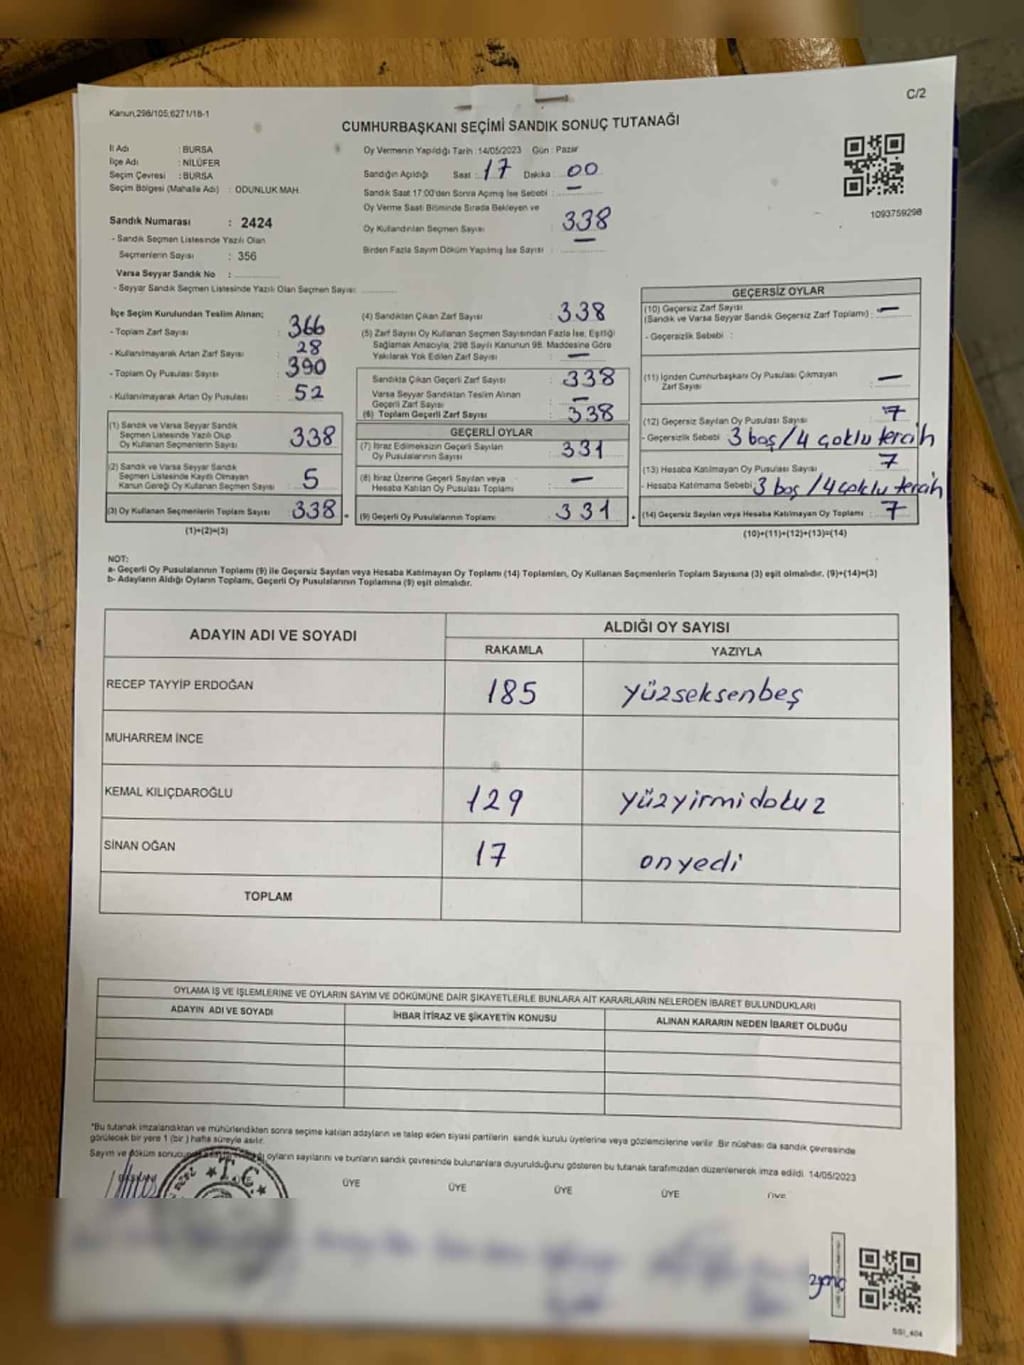 C/2
Kanun,298/105;6271/18-1
CUMHURBAŞKANI SEÇİMİ SANDIK SONUÇ TUTANAĞI
İl Adı : BURSA
İlçe Adı : NİLÜFER
Seçim Çevresi : BURSA
Seçim Bölgesi (Mahalle Adı) : ODUNLUK MAH.
Sandık Numarası : 2424
- Sandık Seçmen Listesinde Yazılı Olan
Seçmenlerin Sayısı : 356
Varsa Seyyar Sandık No : ..............
- Seyyar Sandık Seçmen Listesinde Yazılı Olan Seçmen Sayısı : ..............
Oy Vermenin Yapıldığı Tarih :14/05/2023 Gün : Pazar
Sandığın Açıldığı Saat : 17 Dakika : 00
Sandık Saat 17:00'den Sonra Açılmış İse Sebebi : —
Oy Verme Saati Bitiminde Sırada Bekleyen ve
Oy Kullandırılan Seçmen Sayısı : 338
Birden Fazla Sayım Döküm Yapılmış İse Sayısı : —
1093759298
İlçe Seçim Kurulundan Teslim Alınan;
- Toplam Zarf Sayısı : 366
- Kullanılmayarak Artan Zarf Sayısı : 28
- Toplam Oy Pusulası Sayısı : 390
- Kullanılmayarak Artan Oy Pusulası : 52
(1) Sandık ve Varsa Seyyar Sandık
Seçmen Listesinde Yazılı Olup
Oy Kullanan Seçmenlerin Sayısı : 338
(2) Sandık ve Varsa Seyyar Sandık
Seçmen Listesinde Kayıtlı Olmayan
Kanun Gereği Oy Kullanan Seçmen Sayısı : 5
(3) Oy Kullanan Seçmenlerin Toplam Sayısı : 338
(1)+(2)=(3)
(4) Sandıktan Çıkan Zarf Sayısı : 338
(5) Zarf Sayısı Oy Kullanan Seçmen Sayısından Fazla İse, Eşitliği
Sağlamak Amacıyla, 298 Sayılı Kanunun 98. Maddesine Göre
Yakılarak Yok Edilen Zarf Sayısı : —
Sandıkta Çıkan Geçerli Zarf Sayısı : 338
Varsa Seyyar Sandıktan Teslim Alınan
Geçerli Zarf Sayısı : —
(6) Toplam Geçerli Zarf Sayısı : 338
GEÇERLİ OYLAR
(7) İtiraz Edilmeksizin Geçerli Sayılan
Oy Pusulalarının Sayısı : 331
(8) İtiraz Üzerine Geçerli Sayılan veya
Hesaba Katılan Oy Pusulası Toplamı : —
(9) Geçerli Oy Pusulalarının Toplamı : 331
GEÇERSİZ OYLAR
(10) Geçersiz Zarf Sayısı
(Sandık ve Varsa Seyyar Sandık Geçersiz Zarf Toplamı) : —
- Geçersizlik Sebebi :
(11) İçinden Cumhurbaşkanı Oy Pusulası Çıkmayan
Zarf Sayısı : —
(12) Geçersiz Sayılan Oy Pusulası Sayısı : 7
- Geçersizlik Sebebi : 3 boş / 4 çoklu tercih
(13) Hesaba Katılmayan Oy Pusulası Sayısı : 7
- Hesaba Katılmama Sebebi : 3 boş / 4 çoklu tercih
(14) Geçersiz Sayılan veya Hesaba Katılmayan Oy Toplamı : 7
(10)+(11)+(12)+(13)=(14)
NOT:
a- Geçerli Oy Pusulalarının Toplamı (9) ile Geçersiz Sayılan veya Hesaba Katılmayan Oy Toplamı (14) Toplamları, Oy Kullanan Seçmenlerin Toplam Sayısına (3) eşit olmalıdır. (9)+(14)=(3)
b- Adayların Aldığı Oyların Toplamı, Geçerli Oy Pusulalarının Toplamına (9) eşit olmalıdır.
ADAYIN ADI VE SOYADI ALDIĞI OY SAYISI
RAKAMLA YAZIYLA
RECEP TAYYİP ERDOĞAN 185 yüzseksenbeş
MUHARREM İNCE
KEMAL KILIÇDAROĞLU 129 yüzyirmidokuz
SİNAN OĞAN 17 onyedi
TOPLAM
OYLAMA İŞ VE İŞLEMLERİNE VE OYLARIN SAYIM VE DÖKÜMÜNE DAİR ŞİKAYETLERLE BUNLARA AİT KARARLARIN NELERDEN İBARET BULUNDUKLARI
ADAYIN ADI VE SOYADI İHBAR İTİRAZ VE ŞİKAYETİN KONUSU ALINAN KARARIN NEDEN İBARET OLDUĞU
*Bu tutanak imzalandıktan ve mühürlendikten sonra seçime katılan adayların ve talep eden siyasi partilerin sandık kurulu üyelerine veya gözlemcilerine verilir. Bir nüshası da sandık çevresinde
görülecek bir yere 1 (bir) hafta süreyle asılır.
Sayım ve döküm sonucu oyların sayılarını ve bunların sandık çevresinde bulunanlara duyurulduğunu gösteren bu tutanak tarafımızdan düzenlenerek imza edildi. 14/05/2023
BAŞKAN ÜYE ÜYE ÜYE ÜYE ÜYE
T.C.
SSI_404